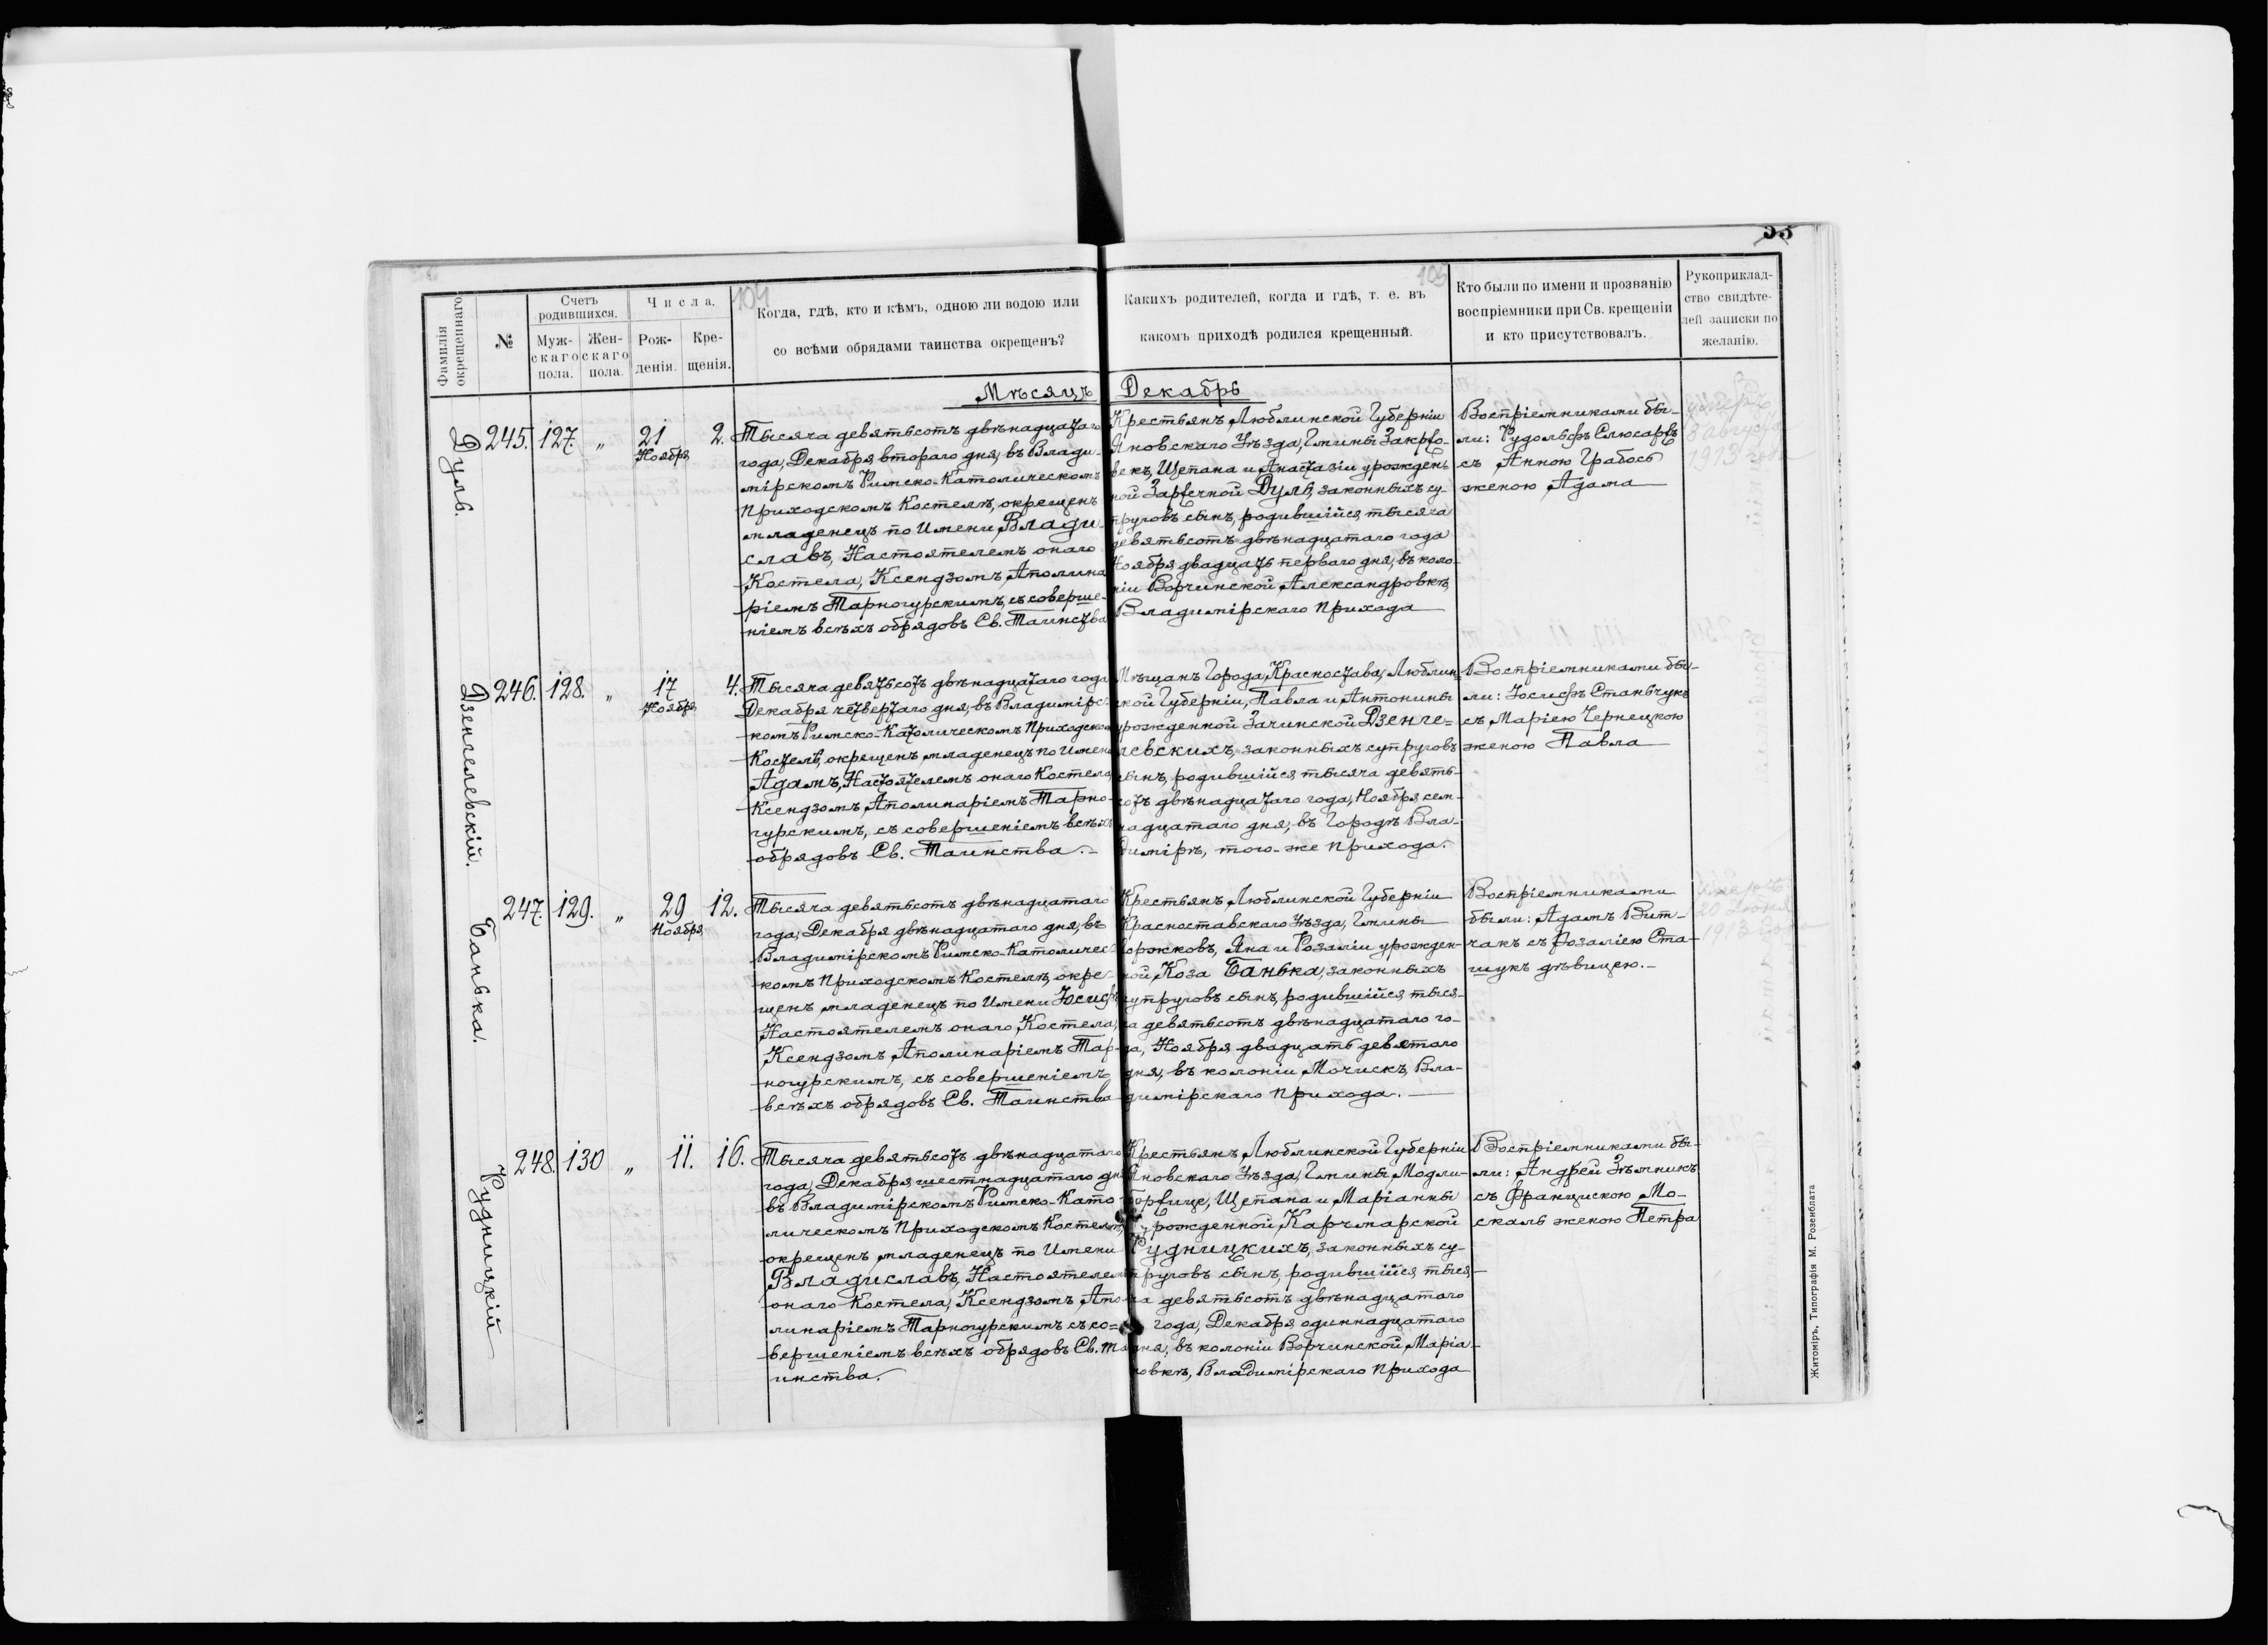 55
104
105
Фамилія окрещеннаго.
№
Счетъ родившихся.
Муж-скаго пола.
Жен-скаго пола.
Числа.
Рож-денія.
Кре-щенія.
Когда, гдѣ, кто и кѣмъ, одною ли водою или
со всѣми обрядами таинства окрещенъ?
Какихъ родителей, когда и гдѣ, т. е. въ
какомъ приходѣ родился крещенный.
Кто были по имени и прозванію
воспріемники при Св. крещеніи
и кто присутствовалъ.
Рукоприклад-
ство свидѣте-
лей записки по
желанію.
Мѣсяцъ Декабрь
Дуль.
245. 127 „ 21 Ноября 2.
Тысяча девятьсотъ двѣнадцатаго
года, Декабря втораго дня, въ Влади-
мірскомъ Римско-Католическомъ
Приходскомъ Костелѣ, окрещенъ
младенецъ по Имени Влади-
славъ, Настоятелемъ онаго
Костела, Ксендзомъ Аполина-
ріемъ Тарногурскимъ, съ соверше-
ніемъ всѣхъ обрядовъ Св. Таинства
Крестьянъ Люблинской Губерніи
Яновскаго Уѣзда, Гмины Закржо-
векъ, Щепана и Анастазіи урожден-
ной Заржечной Дуль, законныхъ су-
пруговъ сынъ, родившійся тысяча
девятьсотъ двѣнадцатаго года
Ноября двадцать перваго дня, въ коло-
ніи Ворчинской Александровкѣ,
Владимірскаго Прихода
Воспріемниками бы-
ли: Рудольфъ Слюсаръ
съ Анною Грабось
женою Адама
Умеръ
8 августа
1913 года
Дзенгелевскій.
246. 128. „ 17 Ноября 4.
Тысяча девятьсотъ двѣнадцатаго года
Декабря четвертаго дня, въ Владимірс-
комъ Римско-Католическомъ Приходском
Костелѣ, окрещенъ младенецъ по Имени
Адамъ, Настоятелемъ онаго Костела,
Ксендзомъ Аполинаріемъ Тарно-
гурскимъ, съ совершеніемъ всѣхъ
обрядовъ Св. Таинства.-
Мѣщанъ Города Красностава, Люблин-
ской Губерніи, Павла и Антонины
урожденной Зачинской Дзенге=
левскихъ, законныхъ супруговъ
сынъ, родившійся тысяча девять-
сотъ двѣнадцатаго года, Ноября сем-
надцатаго дня, въ Городѣ Вла-
димірѣ, того-же Прихода.
Воспріемниками бы-
ли: Іосифъ Станчукъ
съ Маріею Чернецкою
женою Павла
Банька.
247. 129. „ 29 Ноября 12.
Тысяча девятьсотъ двѣнадцатаго
года, Декабря двѣнадцатаго дня, въ
Владимірскомъ Римско-Католичес-
комъ Приходскомъ Костелѣ, окре-
щенъ младенецъ по Имени Іосифъ
Настоятелемъ онаго Костела,
Ксендзомъ Аполинаріемъ Тар-
ногурскимъ, съ совершеніемъ
всѣхъ обрядовъ Св. Таинства
Крестьянъ Люблинской Губерніи
Красноставскаго Уѣзда, Гмины
Горжковъ, Яна и Розаліи урожден-
ной Коза Банька, законныхъ
супруговъ сынъ, родившійся тыся-
ча девятьсотъ двѣнадцатаго го-
да, Ноября двадцать девятаго
дня, въ колоніи Мочискъ, Вла-
димірскаго Прихода.
Воспріемниками
были: Адамъ Вит-
чакъ съ Розаліею Ста-
шукъ дѣвицею.-
Умеръ
20 Іюня
1913 года
Рудницкій
248. 130 „ 11. 16.
Тысяча девятьсотъ двѣнадцатаго
года, Декабря шестнадцатаго дня
въ Владимірскомъ Римско-Като-
лическомъ Приходскомъ Костелѣ,
окрещенъ младенецъ по Имени
Владиславъ, Настоятелемъ
онаго Костела, Ксендзомъ Апо-
линаріемъ Тарногурскимъ съ со=
вершеніемъ всѣхъ обрядовъ Св. Та-
инства.
Крестьянъ Люблинской Губерніи
Яновскаго Уѣзда, Гмины Модли-
боржице, Щепана и Маріанны
урожденной Карчмарской
Рудницкихъ, законныхъ су-
пруговъ сынъ, родившійся тыся-
ча девятьсотъ двѣнадцатаго
года, Декабря одиннадцатаго
дня, въ колоніи Ворчинской Маріа-
новкѣ, Владимірскаго Прихода
Воспріемниками бы-
ли: Андрей Зѣмникъ
съ Францискою Мо-
скаль женою Петра
Житоміръ, Типографія М. Розенблата